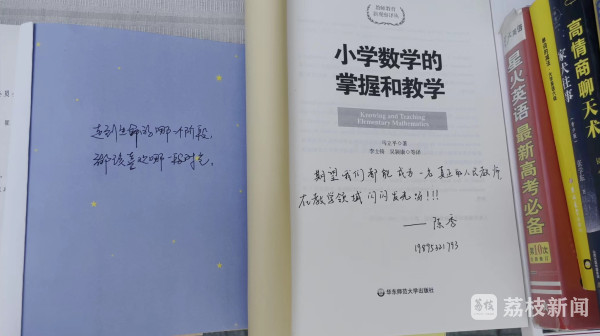 走到生命的哪一个阶段,
都该喜欢哪一段时光,
教师教育
小学数学的
掌握和教学
Knowing and Teaching
Elementary Mathematics
马立平 著
李士锜 吴颖康 等译
期望我们都能成为一名真正的人民教师
在教学领域闪闪发光!!!
——陈香
华东师范大学出版社
星火英语 最新高考必备
高情商聊天术
家犬往事
荔枝新闻